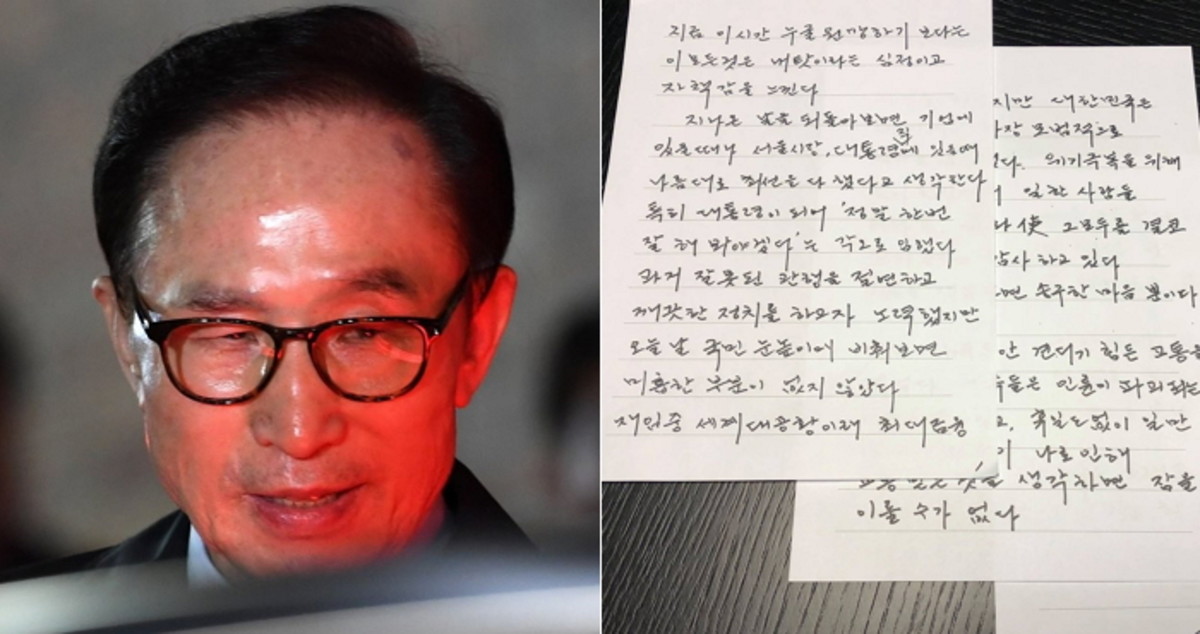 지금 이시간 누굴 원망하기 보다는
이 모든것은 내탓이라는 심정이고
자책감을 느낀다
지나온 날을 되돌아보면 기업에
있을때나 서울시장, 대통령직에 있을때
나름대로 최선을 다 했다고 생각한다
특히 대통령이 되어 '정말 한번
잘 해 봐야겠다'는 각오로 임했다
과거 잘못된 관행을 절연하고
깨끗한 정치를 하고자 노력했지만
오늘 날 국민 눈높이에 비춰보면
미흡한 부분이 없지 않았다
재임중 세계대공황이래 최대금융
지만 대한민국은
가장 모범적으로
다. 위기극복을 위해
일한 사람들
나 使 그모두를 결코
감사 하고 있다
면 송구한 마음 뿐이다
안 견디기 힘든 고통을
들은 인륜이 파괴되는
고, 휴일도 없이 일만
기 나로 인해
생각하면 잠을
이룰 수가 없다